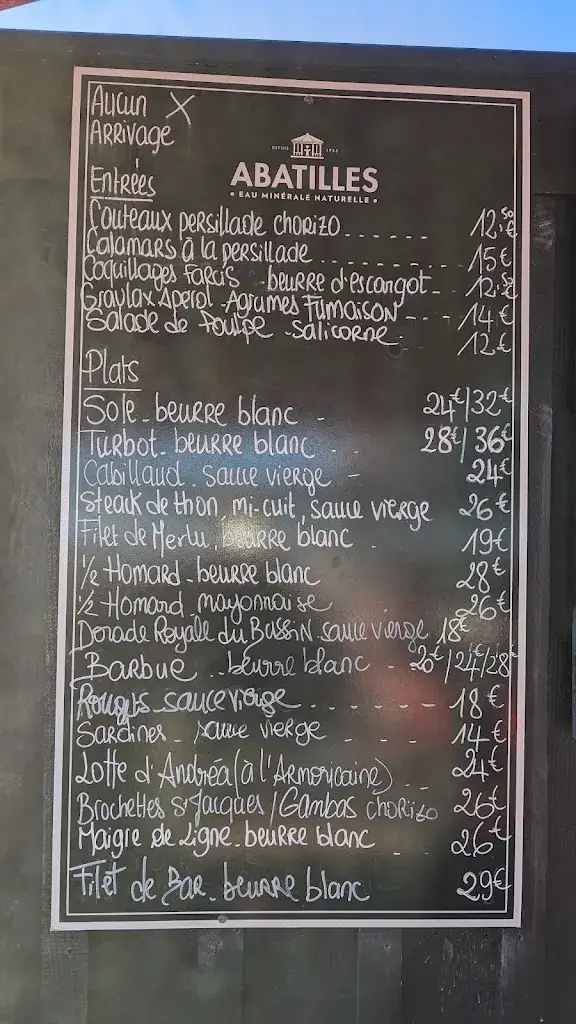 Aucun X
Arrivage
DEPUIS 1925
ABATILLES
• EAU MINÉRALE NATURELLE •
Entrées
Couteaux persillade chorizo ...... 12,50€
Calamars à la persillade ........ 15€
Coquillages Farcis - beurre d'escargot - 12,50€
Gravlax Aperol - Agrumes Fumaison --- 14€
Salade de Poulpe - salicorne. 12€
Plats
Sole - beurre blanc - 24€/32€
Turbot - beurre blanc - 28€/36€
Cabillaud - sauce vierge - 24€
Steack de thon, mi-cuit, sauce vierge 26€
Filet de Merlu, beurre blanc . 19€
1/2 Homard - beurre blanc 28€
1/2 Homard - mayonnaise 26€
Dorade Royale du Bassin - sauce vierge 18€
Barbue .. beurre blanc - 20€/24€/28€
Rougets sauce vierge ........ 18€
Sardines - sauce vierge - - 14€
Lotte d'Andréa (à l'Armoricaine) -- 24€
Brochettes St Jacques / Gambas chorizo 26€
Maigre de Ligne - beurre blanc 26€
Filet de Bar - beurre blanc 29€